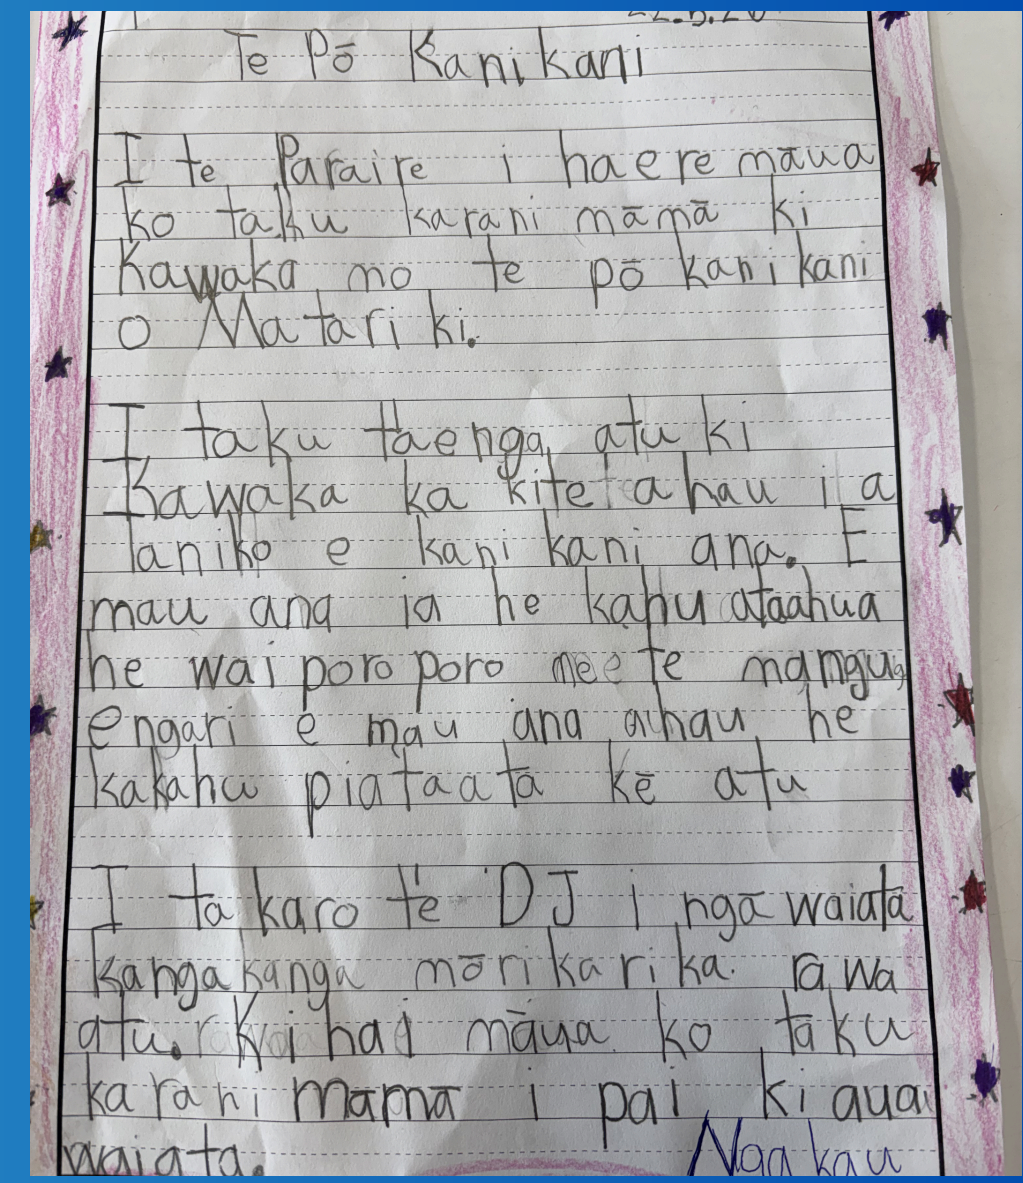 Te Pō Kanikani
I te Paraire i haere māua
ko taku karani māmā ki
Kawaka mo te pō kanikani
o Matariki.
I taku taenga atu ki
Kawaka ka kite ahau i a
Taniko e kanikani ana. E
mau ana ia he kahu ataahua
he waiporoporo mee te mamgu,
engari e mau ana ahau he
kakahu piataata kē atu
I takaro te DJ i ngā waiata
kangakanga mōrikarika rawa
atu. Kaihai māua ko taku
karani māmā i pai ki aua
waiata.
Ngakau